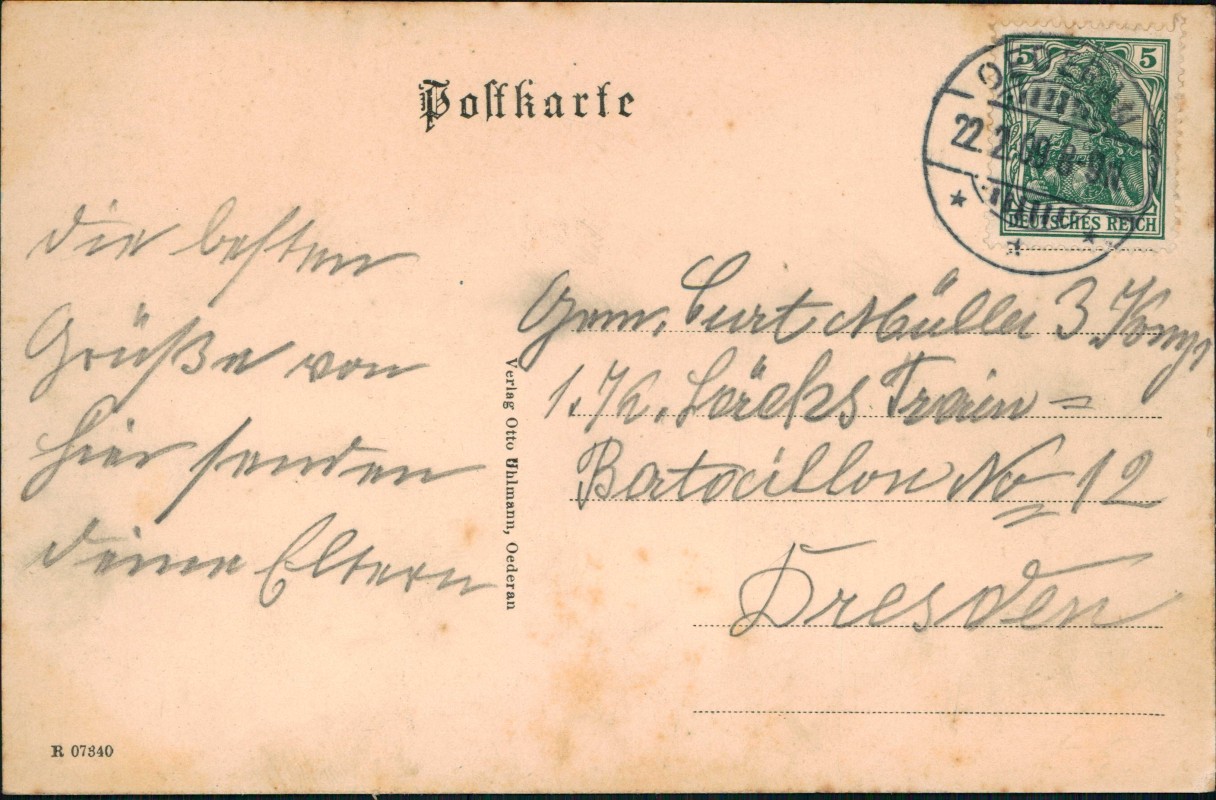 Postkarte
5 5
OEDERAN
22.2.09.8-9N
DEUTSCHES REICH
die besten
Grüße von
hier senden
deine Eltern
Verlag Otto Uhlmann, Oederan
Curt Müller 3. Komp.
1. K. Sächs Train=
Bataillon No 12
Dresden
R 07340